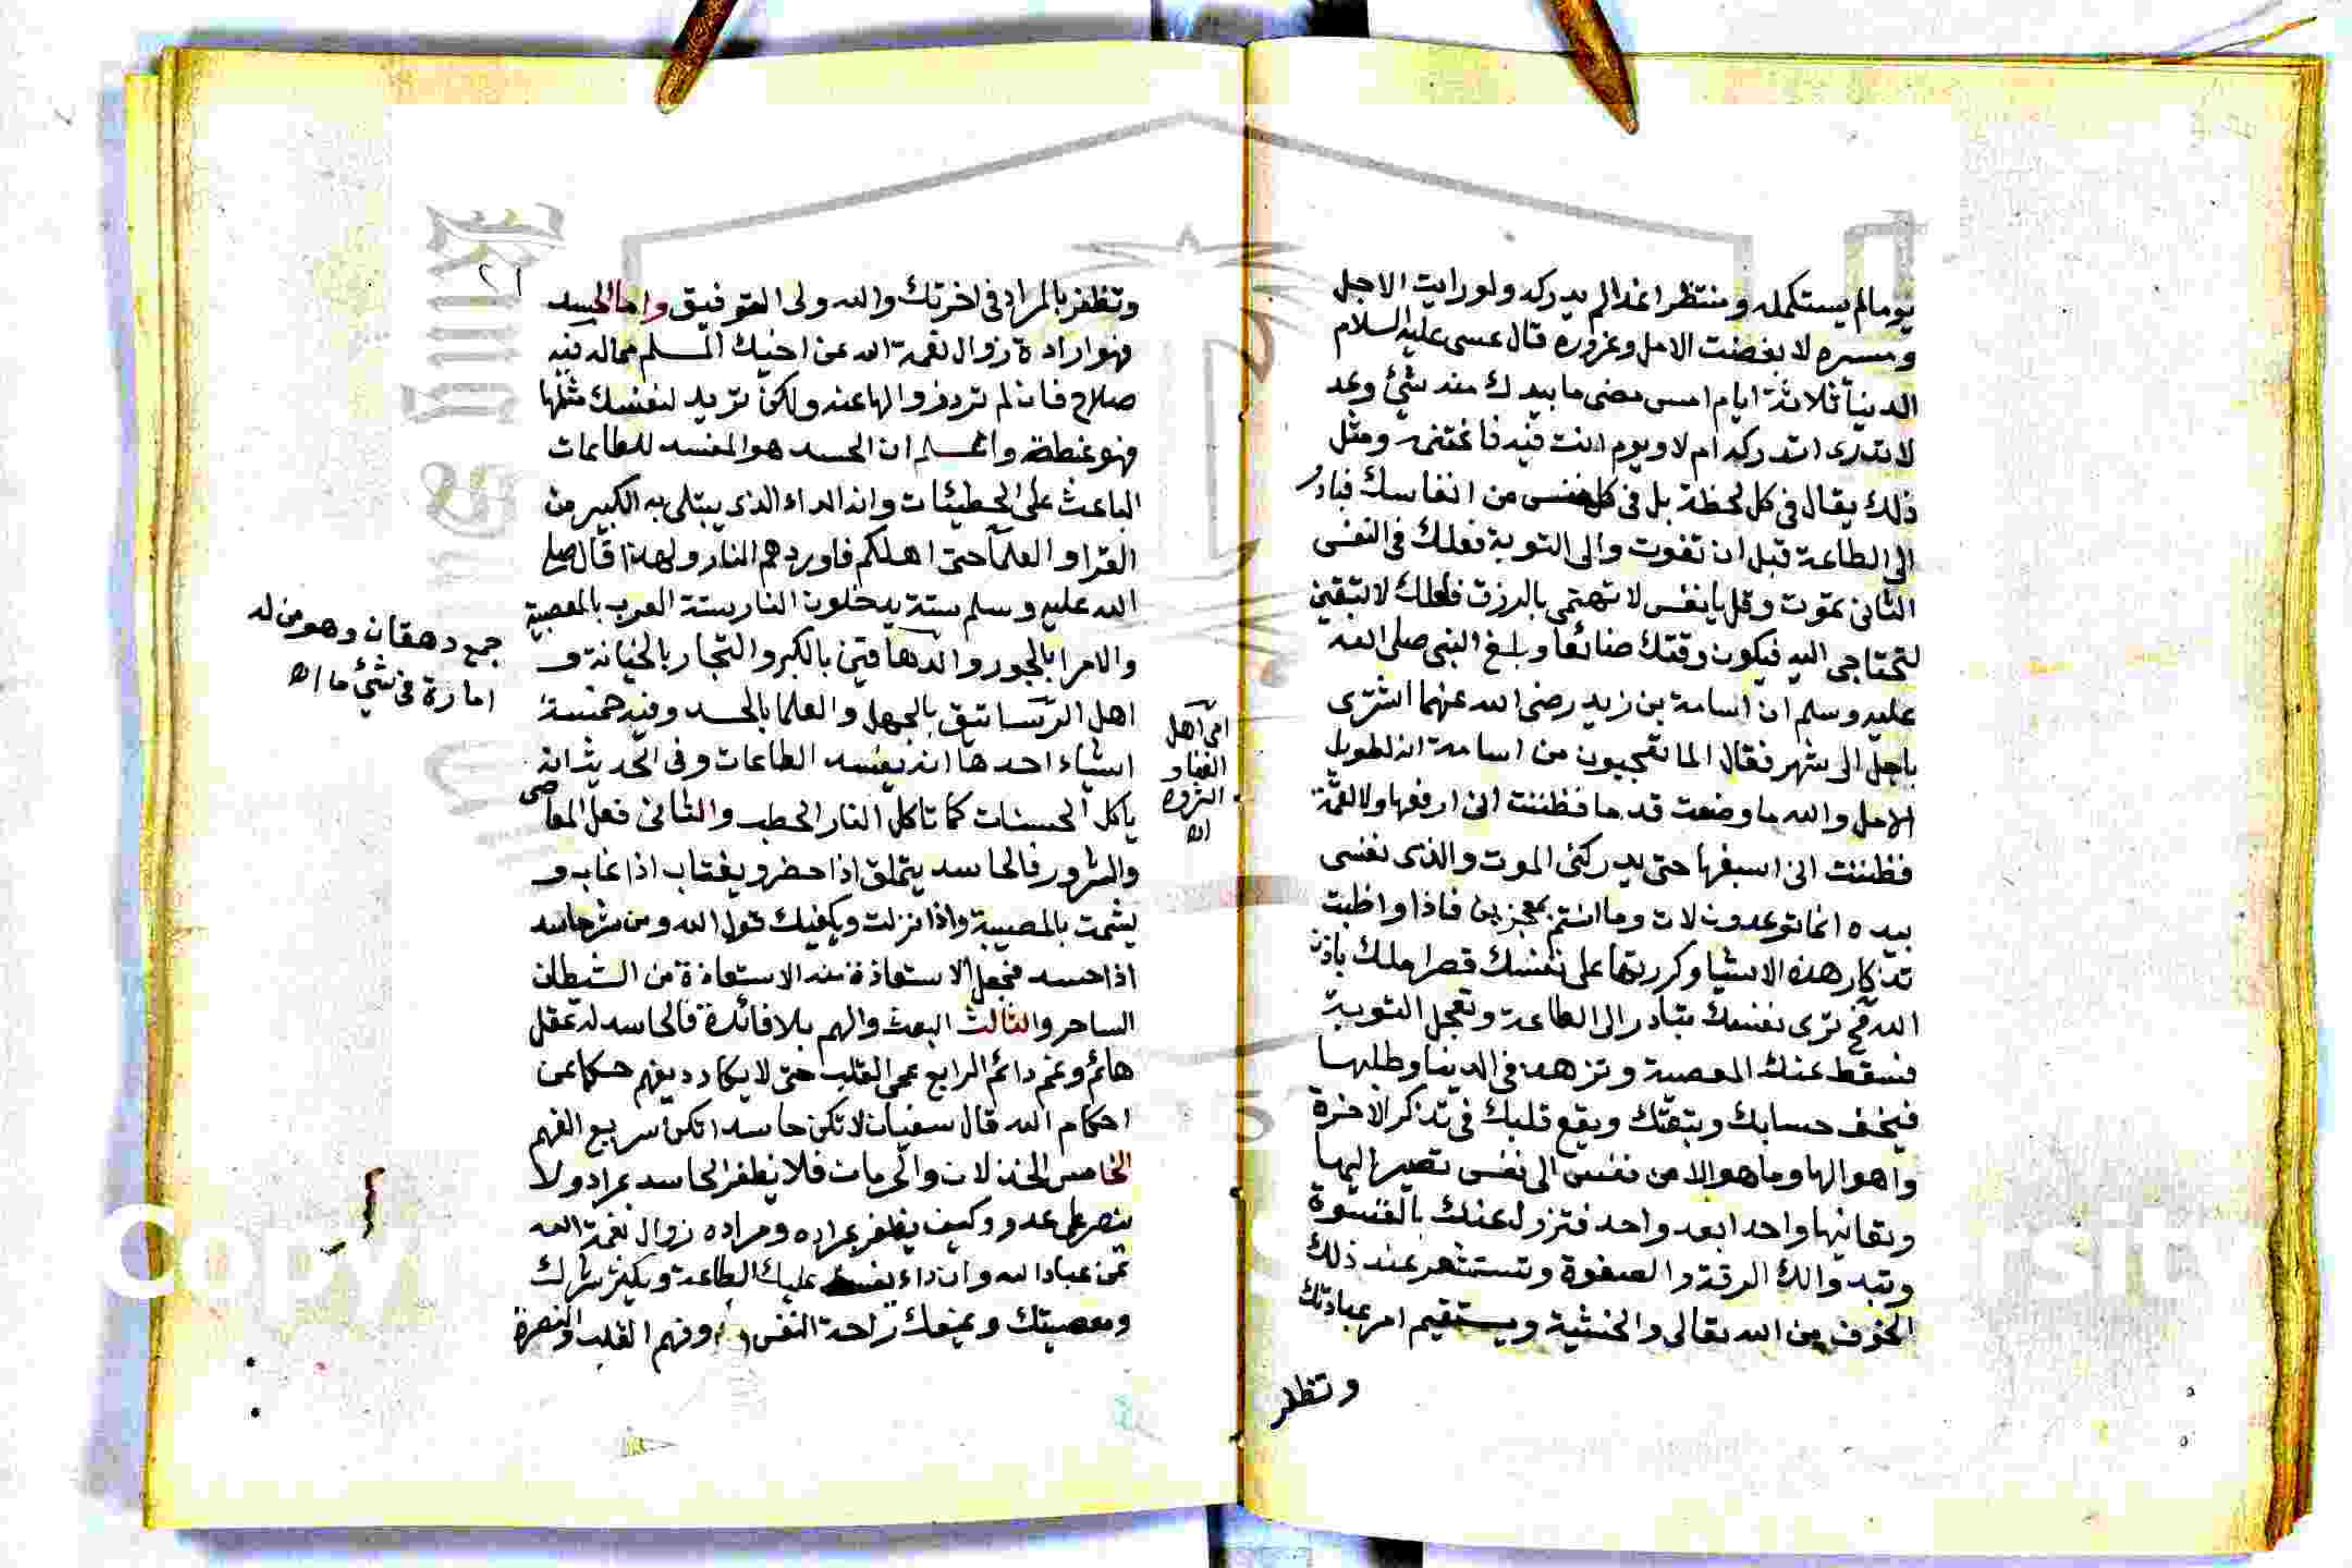 يوما لم يستكمله ومنتظرا غدا لم يدركه ولو رايت الاجل
ومسيره لا بغضت الامل وغروره قال عيسى عليه السلام
الدنيا ثلاثة ايام امس مضى ما بيدك منه شئ وغد
لا تدرى اتدركه ام لا ويوم انت فيه فاغتنمه ومثل
ذلك يقال فى كل لحظة بل فى كل نفس من انفاسك فبادر
الى الطاعة قبل ان تفوت والى التوبة فعلك فى النفس
الثانى تموت وقل يا نفس لا تهتمى بالرزق فلعلك لا تبقين
لتحتاجى اليه فيكون وقتك ضائعا وبلغ النبى صلى الله
عليه وسلم ان اسامة بن زيد رضى الله عنهما اشترى
باجل الى شهر فقال اما تعجبون من اسامة انه لطويل
الامل والله ما وضعت قدما فظننت انى ارفعها ولا لقمة
فظننت انى اسيغها حتى يدركنى الموت والذى نفسى
بيده انما توعدون لات وما انتم بمعجزين فاذا واظبت
تذكار هذه الاشيا وكررتها على نفسك قصر املك باذن
الله فح ترى نفسك تبادر الى الطاعة وتعجل التوبة
فسقط عنك المعصية وتزهد فى الدنيا وطلبها
فيخف حسابك وتبعتك ويقع قلبك فى تذكر الاخرة
واهوالها وما هو الا من نفس الى نفس تصير اليها
وتعاينها واحدا بعد واحد فتزول عنك القسوة
وتبدوا لك الرقة والصفوة وتستشعر عند ذلك
الخوف من الله تعالى والخشية ويستقيم امر عبادتك
وتظفر
٢١
وتظفر بالمراد فى اخرتك والله ولى التوفيق واما الحسد
فهو ارادة زوال نعمة الله عن اخيك المسلم مما له فيه
صلاح فان لم ترد زوالها عنه ولكن تريد لنفسك مثلها
فهو غبطة واعلم ان الحسد هو المفسد للطاعات
الباعث على الخطيئات وانه الداء الذى يبتلى به الكبير من
القرا والعلما حتى اهلكهم فاوردهم النار ولهذا قال صلى
الله عليه وسلم ستة يدخلون النار بستة العرب بالعصبية
والامرا بالجور والدهاقين بالكبر والتجار بالخيانة و
اهل الرساتيق بالجهل والعلما بالحسد وفيه خمسة
اشياء احدها انه يفسد الطاعات وفى الحديث انه
ياكل الحسنات كما تاكل النار الحطب والثانى فعل المعاصى
والشرور فالحاسد يتملق اذا حضر ويغتاب اذا غاب و
يشمت بالمصيبة اذا نزلت ويكفيك قول الله ومن شر حاسد
اذا حسد فجعل الاستعاذة منه الاستعاذة من الشيطان
الساحر والثالث التعب والهم بلا فائدة فالحاسد له عقل
هائم وغم دائم الرابع عمى القلب حتى لا يكاد يفهم حكما من
احكام الله قال سفيان لا تكن حاسدا تكن سريع الفهم
الخامس الخذلان والحرمان فلا يظفر الحاسد بمراد ولا
ينصر على عدو وكيف يظفر بمراده ومراده زوال نعمة الله
عن عباد الله وان داء يفسد عليك الطاعة ويكثر شرك
ومعصيتك ويمنعك راحة النفس وفهم القلب والنصرة
جمع دهقان وهو من له
امارة فى شئ ما اه
اى اهل
الغنا و
الثروة
اه